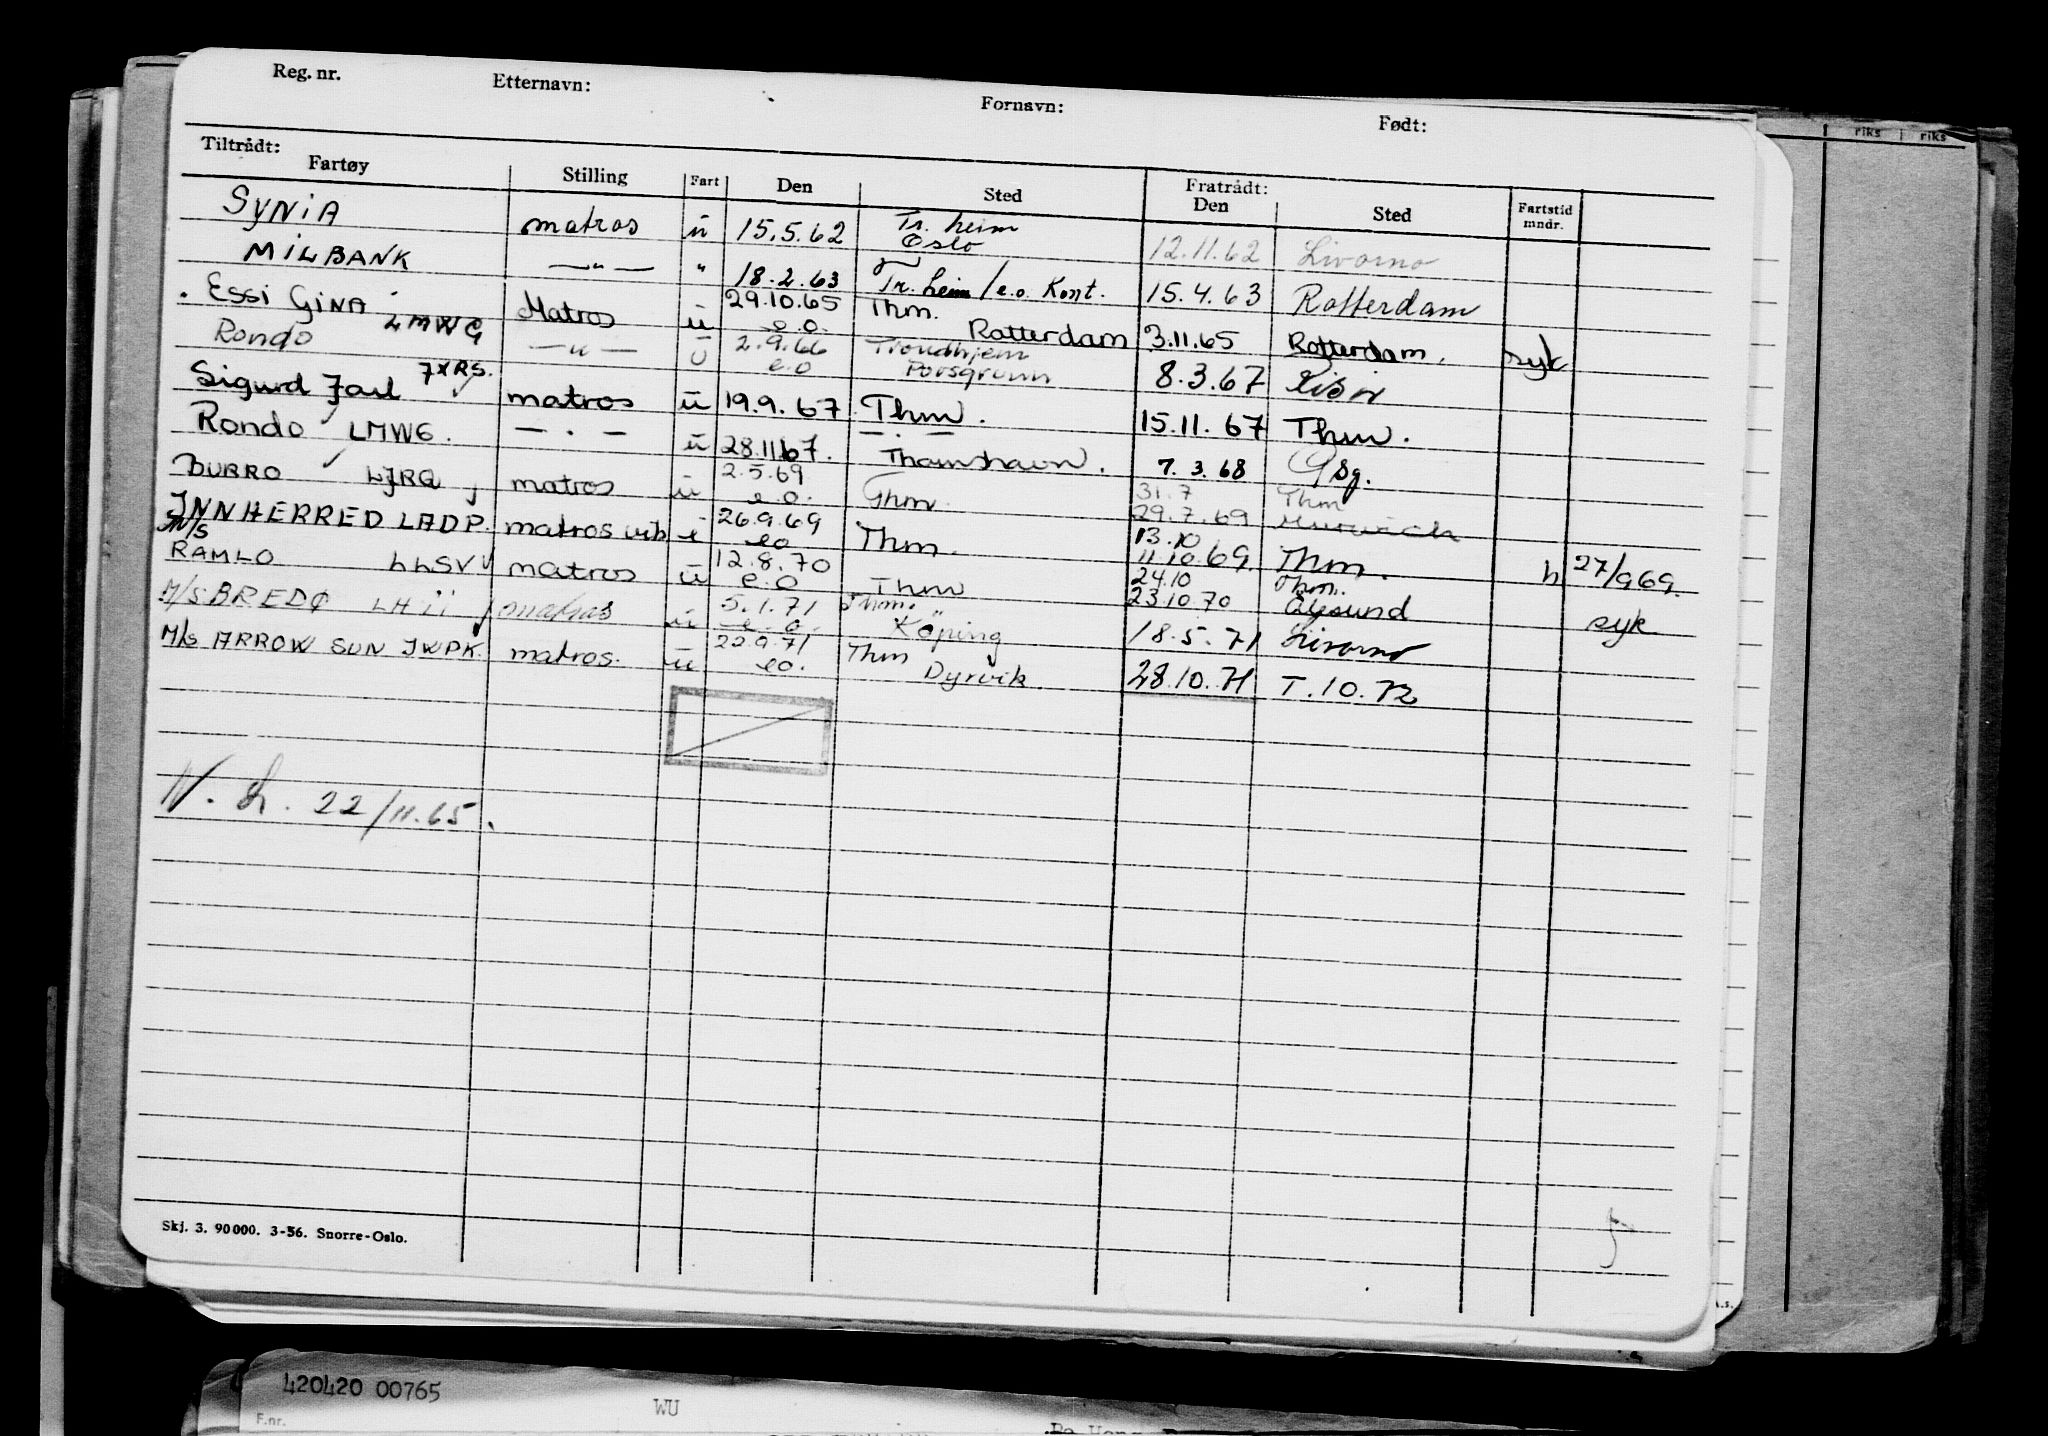 Reg. nr. Etternavn: Fornavn: Født:
riks riks
Tiltrådt: Fratrådt:
Fartøy Stilling Fart Den Sted Den Sted Fartstid mndr.
SYNIA matros ü 15.5.62 Tr. heim Oslo 12.11.62 Livorno
MILBANK —"— " 18.2.63 Tr. heim / e.o. Kont. 15.4.63 Rotterdam
Essi GINA matros ü 29.10.65 e.o. Thm. Rotterdam 3.11.65 Rotterdam. syk
Rondo LMWG —"— ü 2.9.66 e.o Trondhjem Porsgrunn 8.3.67
Sigurd Jarl JXRS. matros ü 19.9.67 Thm. 15.11.67 Thm.
Rondo LMWG. — . — ü 28.11.67. — . — Thamshavn. 7.3.68 Psg.
BURRO LJRQ matros ü 2.5.69 e.o. Thm. 31.7 29.7.69 Thm
INNHERRED LADP. matros vib i 26.9.69 eo Thm. 13.10 11.10.69 Thm. h 27/969.
M/S RAMLO LLSV matros ü 12.8.70 e.o Thm 24.10 23.10.70 Thm. Ålesund syk
M/S BREDØ matros ü 5.1.71 e.o. Thm. " Köping 18.5.71 Livorno
M/s ARROW SUN JWPK. matros. ü 22.9.71 eo. Thm Dyrvik 28.10.71 T.10.72
N. L. 22/11.65.
Skj. 3. 90000. 3-56. Snorre-Oslo.
A.s.
420420 00765
F.nr. WU